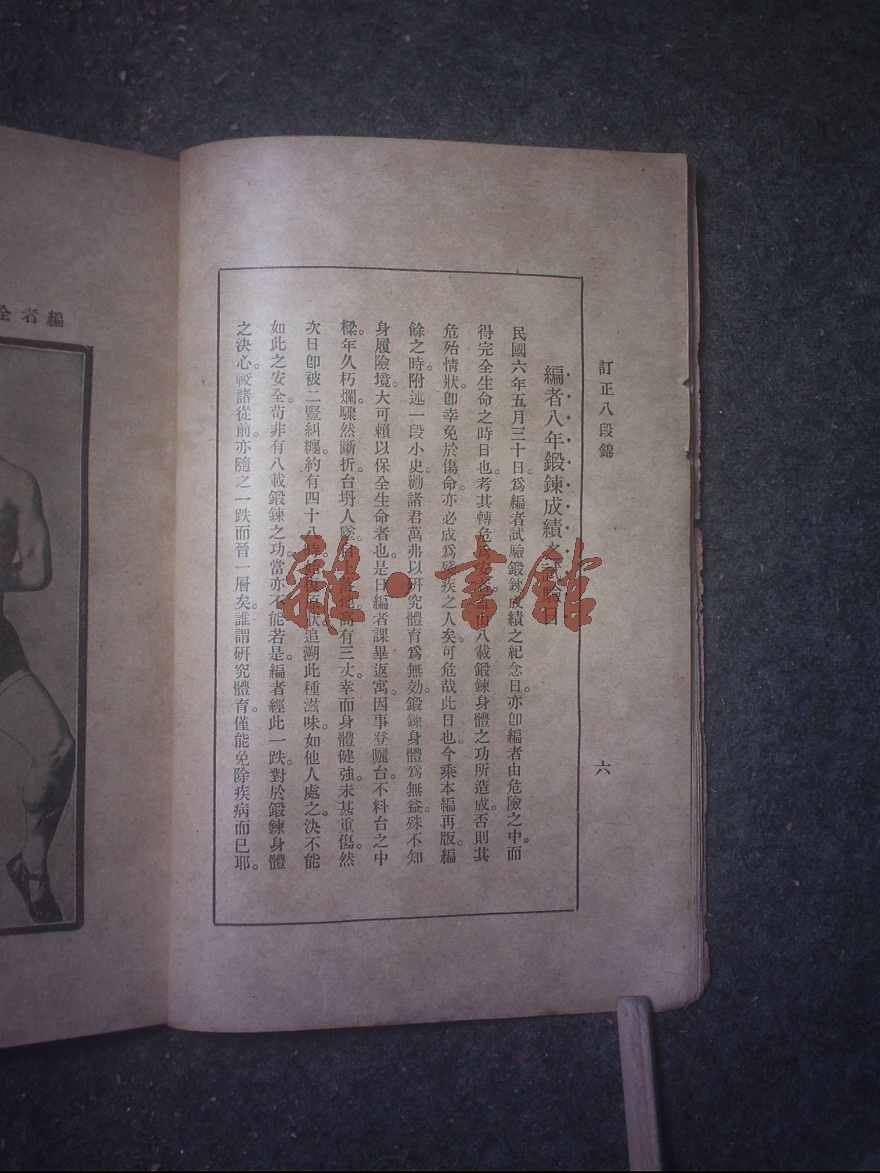 訂正八段錦
六
編者八年鍛鍊成績之試驗日
民國六年五月三十日。爲編者試驗鍛鍊成績之紀念日。亦卽編者由危險之中。而
得完全生命之時日也。考其轉危爲安者。由八載鍛鍊身體之功所造成。否則其
危殆情狀。卽幸免於傷命。亦必成爲殘疾之人矣。可危哉此日也。今乘本編再版。編
餘之時。附述一段小史。勸諸君萬弗以研究體育爲無効。鍛鍊身體爲無益。殊不知
身履險境。大可賴以保全生命者也。是日編者課畢返寓。因事登曬台。不料台之中
樑。年久朽爛。驟然斷折。台坍人墜。落地。高有三丈。幸而身體健強。未甚重傷。然
次日卽被二豎糾纏。約有四十八時。始復原狀。追溯此種滋味。如他人處之。決不能
如此之安全。苟非有八載鍛鍊之功。當亦不能若是。編者經此一跌。對於鍛鍊身體
之決心。較諸從前。亦隨之一跌而晉一層矣。誰謂研究體育。僅能免除疾病而已耶。
編者全
雜·書館